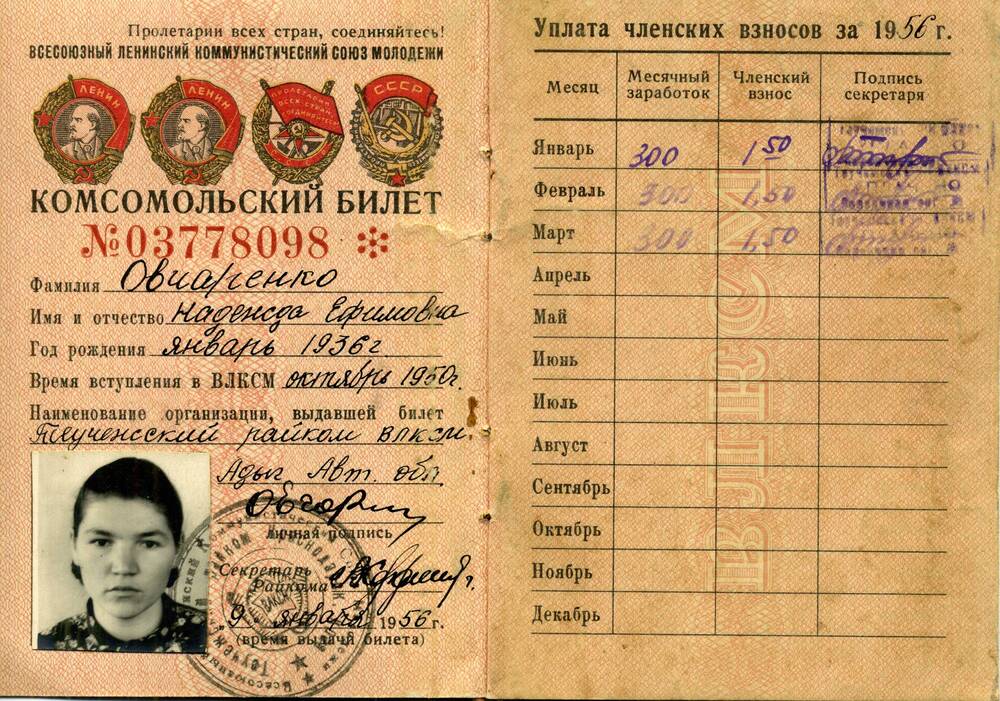 Пролетарии всех стран, соединяйтесь!
ВСЕСОЮЗНЫЙ ЛЕНИНСКИЙ КОММУНИСТИЧЕСКИЙ СОЮЗ МОЛОДЕЖИ
ЛЕНИН
ЛЕНИН
ПРОЛЕТАРИИ ВСЕХ СТРАН, СОЕДИНЯЙТЕСЬ
СССР
КОМСОМОЛЬСКИЙ БИЛЕТ
№ 03778098
Фамилия Овчаренко
Имя и отчество Надежда Ефимовна
Год рождения январь 1936 г
Время вступления в ВЛКСМ октябрь 1950 г.
Наименование организации, выдавшей билет
Теучежсский райком ВЛКСМ
Адыг. Авт. обл.
Личная подпись
Секретарь
Райкома
9 января 1956 г.
(время выдачи билета)
Уплата членских взносов за 1956 г.
Месяц Месячный заработок Членский взнос Подпись секретаря
Январь 300 1 50
Февраль 300 1,50
Март 300 1,50
Апрель
Май
Июнь
Июль
Август
Сентябрь
Октябрь
Ноябрь
Декабрь
ВЛКСМ